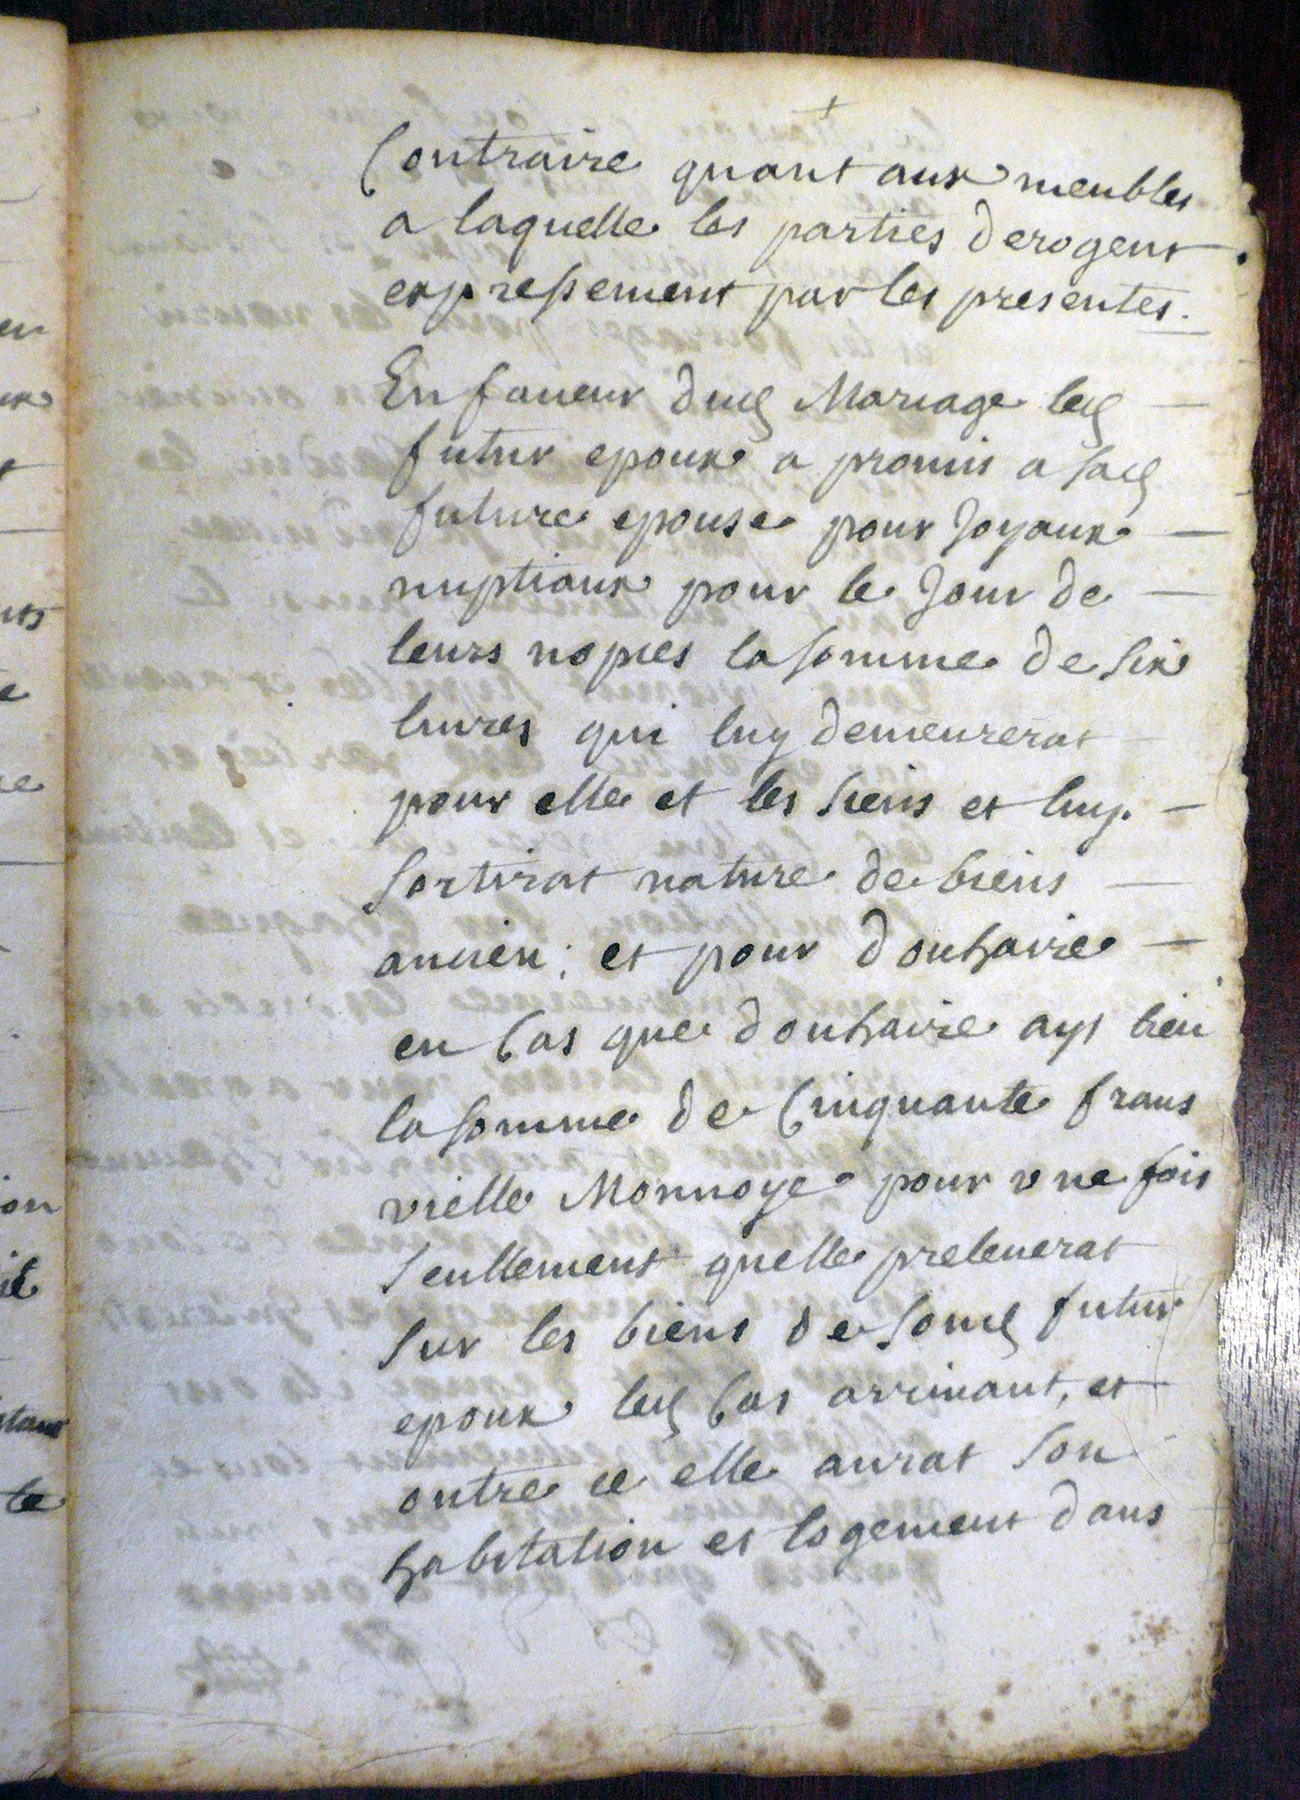 +
Contraire quant aux meubles
a laquelle les parties derogent
expressement par les presentes.
En faueur dud Mariage led —
futur epoux a promis a sad
future epouse pour Joyaux —
nuptiaux pour le Jour de —
leurs nopces la somme de six
liures qui luy demeurerat
pour elle et les siens et luy. —
sortirat nature de biens —
ancien; et pour douhaire —
en Cas que douhaire ayt lieu
la somme de Cinquante frans
vielle Monnoye pour vne fois
seullement quelle preleuerat
sur les biens de sond futur
epoux led Cas arriuant, et
outre ce elle aurat son
habitation et logement dans